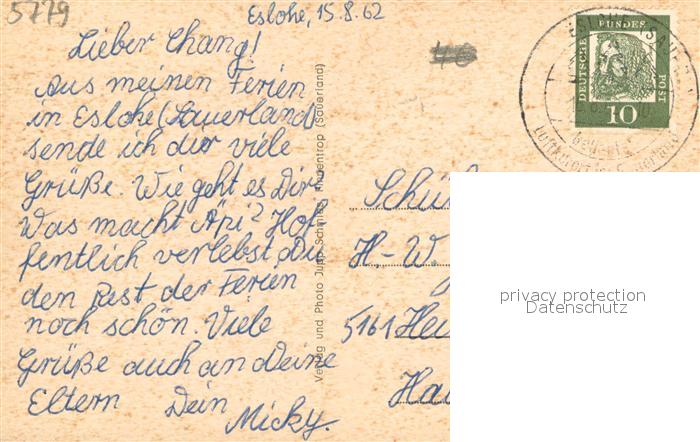 5779
Eslohe, 15.8.62
Lieber Chang!
Aus meinen Ferien
in Eslohe (Sauerland)
sende ich dir viele
Grüße. Wie geht es Dir?
Was macht Äpi? Hof-
fentlich verlebst Du
den Rest der Ferien
noch schön. Viele
Grüße auch an Deine
Eltern Dein
Micky.
Verlag und Photo Jupp Schmies, (Sauerland)
DEUTSCHE
BUNDES
POST
10
Schül
H-W
5161 Hei
Hau
privacy protection
Datenschutz